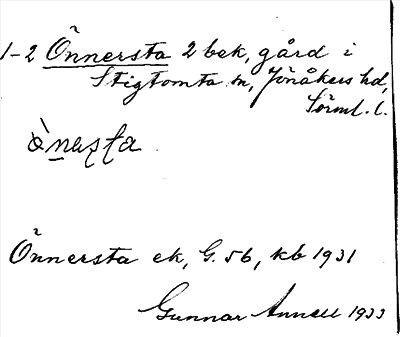 1-2 Önnersta 2 bek, gård i
Stigtomta sn, Jönåkers hd,
Sörml. l.
ò̀nesta
Önnersta ek, G. 56, kb 1931
Gunnar Annell 1933